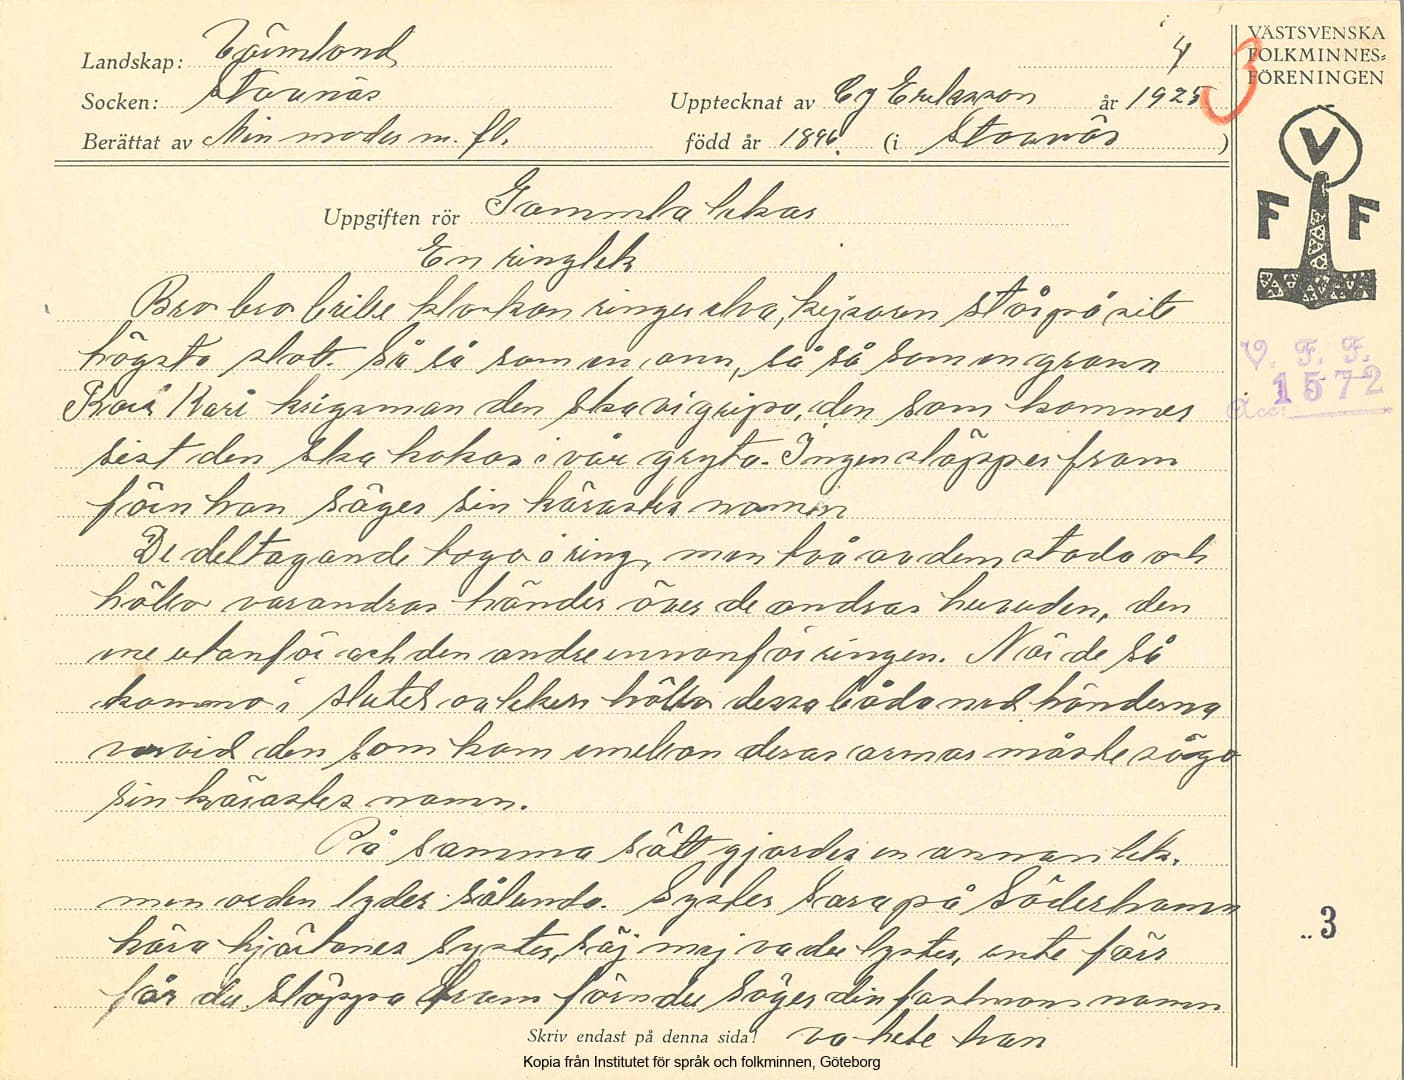 Landskap: Värmland
Socken: Stavnäs
Berättat av Min moder m. fl.
4
Upptecknat av Cg Eriksson år 1925
född år 1896. (i Stavnäs )
3
VÄSTSVENSKA
FOLKMINNES-
FÖRENINGEN
V
F F
V. F. F.
Acc: 1572
Uppgiften rör Gammla lekar
En ringlek
Bro bro brille klockan ringer elva, kejsaren står på sitt
högsta slott. Så så som en ann, så så som en grann
Kari krigsman den ska vi gripa, den som kommer
sist den ska kokas i vår gryta. Ingen släppes fram
förn han säger sin kärastes namn
De deltagande togo i ring, men två av dem stodo och
höllo varandras händer över de andras huvuden, den
ene utanför och den andre innanför ringen. När de så
kommo i slutet av leken höllo dessa båda ned händerna
varvid den som kom emellan deras armar måste säga
sin kärastes namn.
På samma sätt gjordes en annan lek.
men orden lyder sålunda. Syster Sara på Söderhamn
kära hjärtanes syster, säj mej va du lyster, ente förr
får du släppa fram förn du säger din fästmans namn
va hete han
Skriv endast på denna sida!
3
Kopia från Institutet för språk och folkminnen, Göteborg